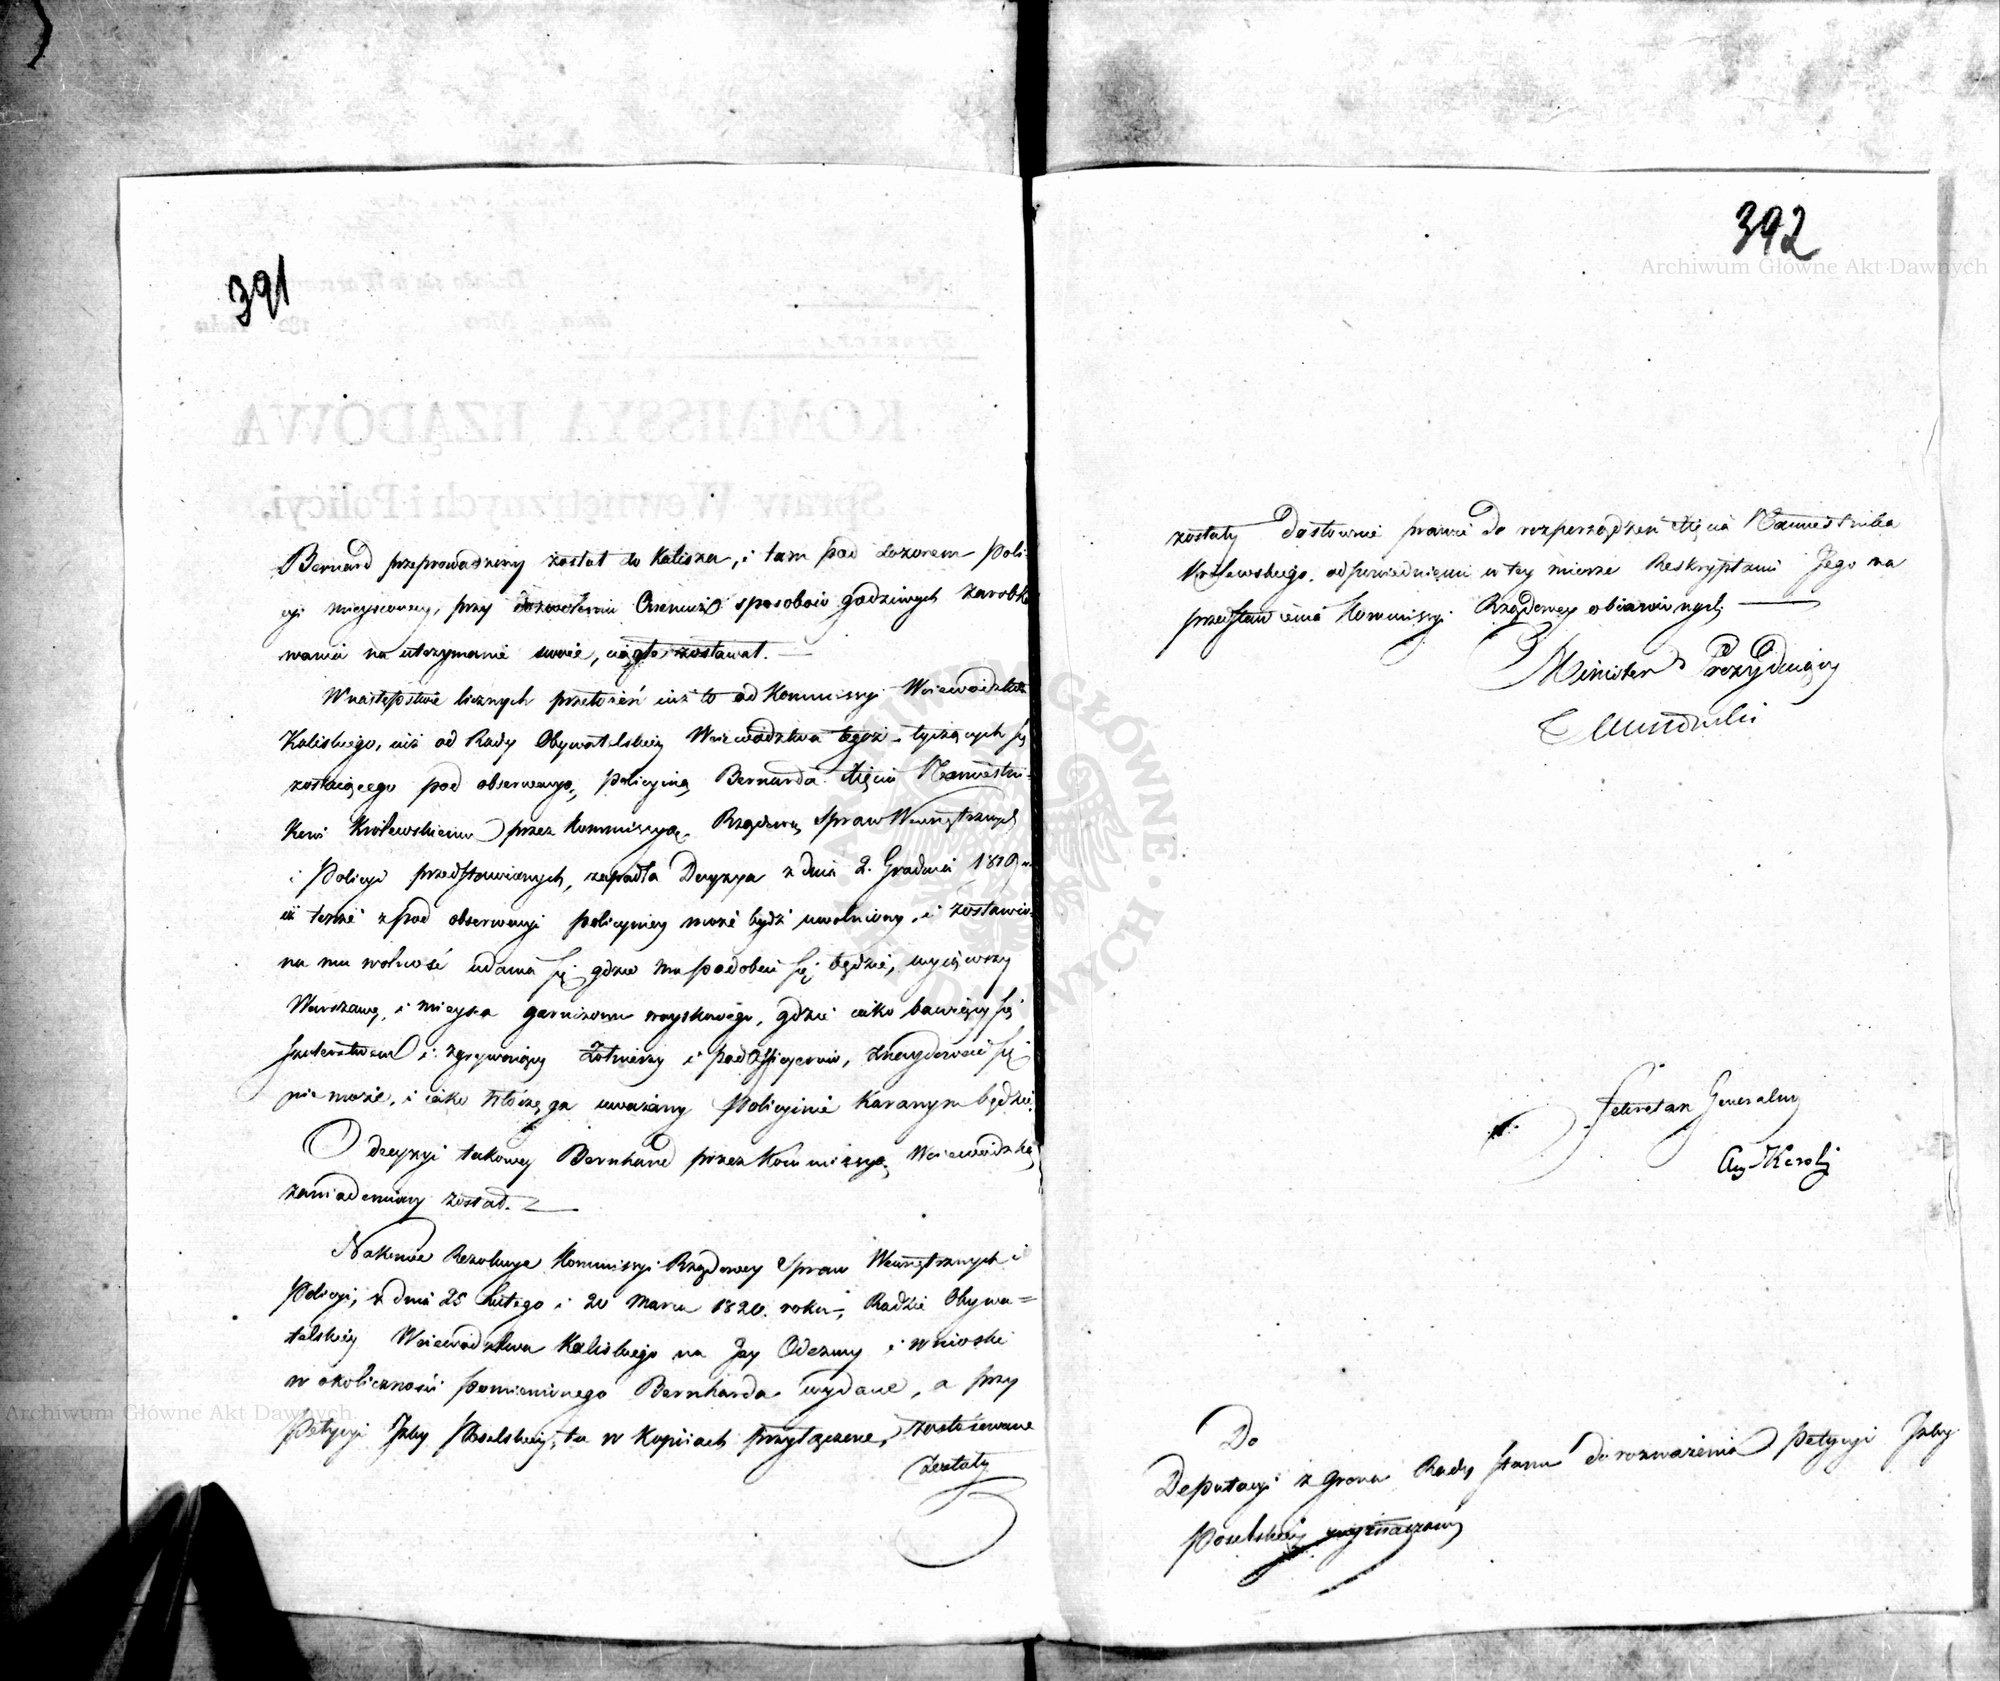 391
Bernard przeprowadzony został do Kalisza, i tam pod dozorem Poli-
cyi mieyscowey, przy dozwoleniu Onemuż sposobów godziwych zarobko
wania na utrzymanie swoie, ciągle zostawał. —
W następstwie licznych przełożeń iuż to od Kommissyi Woiewództwa
Kaliskiego, iuż od Rady Obywatelskiey Woiewództwa tegoż tyczących się
zostaiącego pod obserwacyą policyiną Bernarda Xięciu Namiestni-
kowi Królewskiemu przez Kommissyą Rządową Spraw Wewnętrznych
i Policyi przedstawionych, zapadła Decyzya z dnia 2. Grudnia 1819 r.
iż tenże z pod obserwacyi policyiney może bydź uwolniony, i zostawio-
na mu wolność udania się gdzie mu podobać się będzie, wyiąwszy
Warszawę, i mieysca garnizonu woyskowego, gdzie iako bawiący się
szulerstwem i zgrywaiący Żołnierzy i podofficerów, znaydować się
nie może, i iako włóczęga uważany Policyinie karanym będzie.
O decyzyi takowey Bernhard przez Kommissyą Woiewódzką
zawiadomiony został. —
Nakoniec Rezolucye Kommissyi Rządowey Spraw Wewnętrznych i
Policyi, z dnia 25 Lutego i 20 Marca 1820. roku, Radzie Obywa=
telskiey Woiewództwa Kaliskiego na Jey Odezwy i wnioski
w okoliczności pomienionego Bernharda wydane, a przy
Petycyi Izby Poselskiey, tu w Kopiiach przyłączone, zastosowane
zostały
392
zostały dosłownie prawie do rozporządzeń Xięcia Namiestnika
Królewskiego, odpowiedniemi w tey mierze Reskryptami Jego na
przedstawienia Kommissyi Rządowey obiawionych —
Minister Prezyduiący
Sekretarz Generalny
Do
Deputacyi z grona Rady Stanu do rozważenia Petycyi Izby
Poselskiey wyznaczoney
Archiwum Główne Akt Dawnych
Archiwum Główne Akt Dawnych